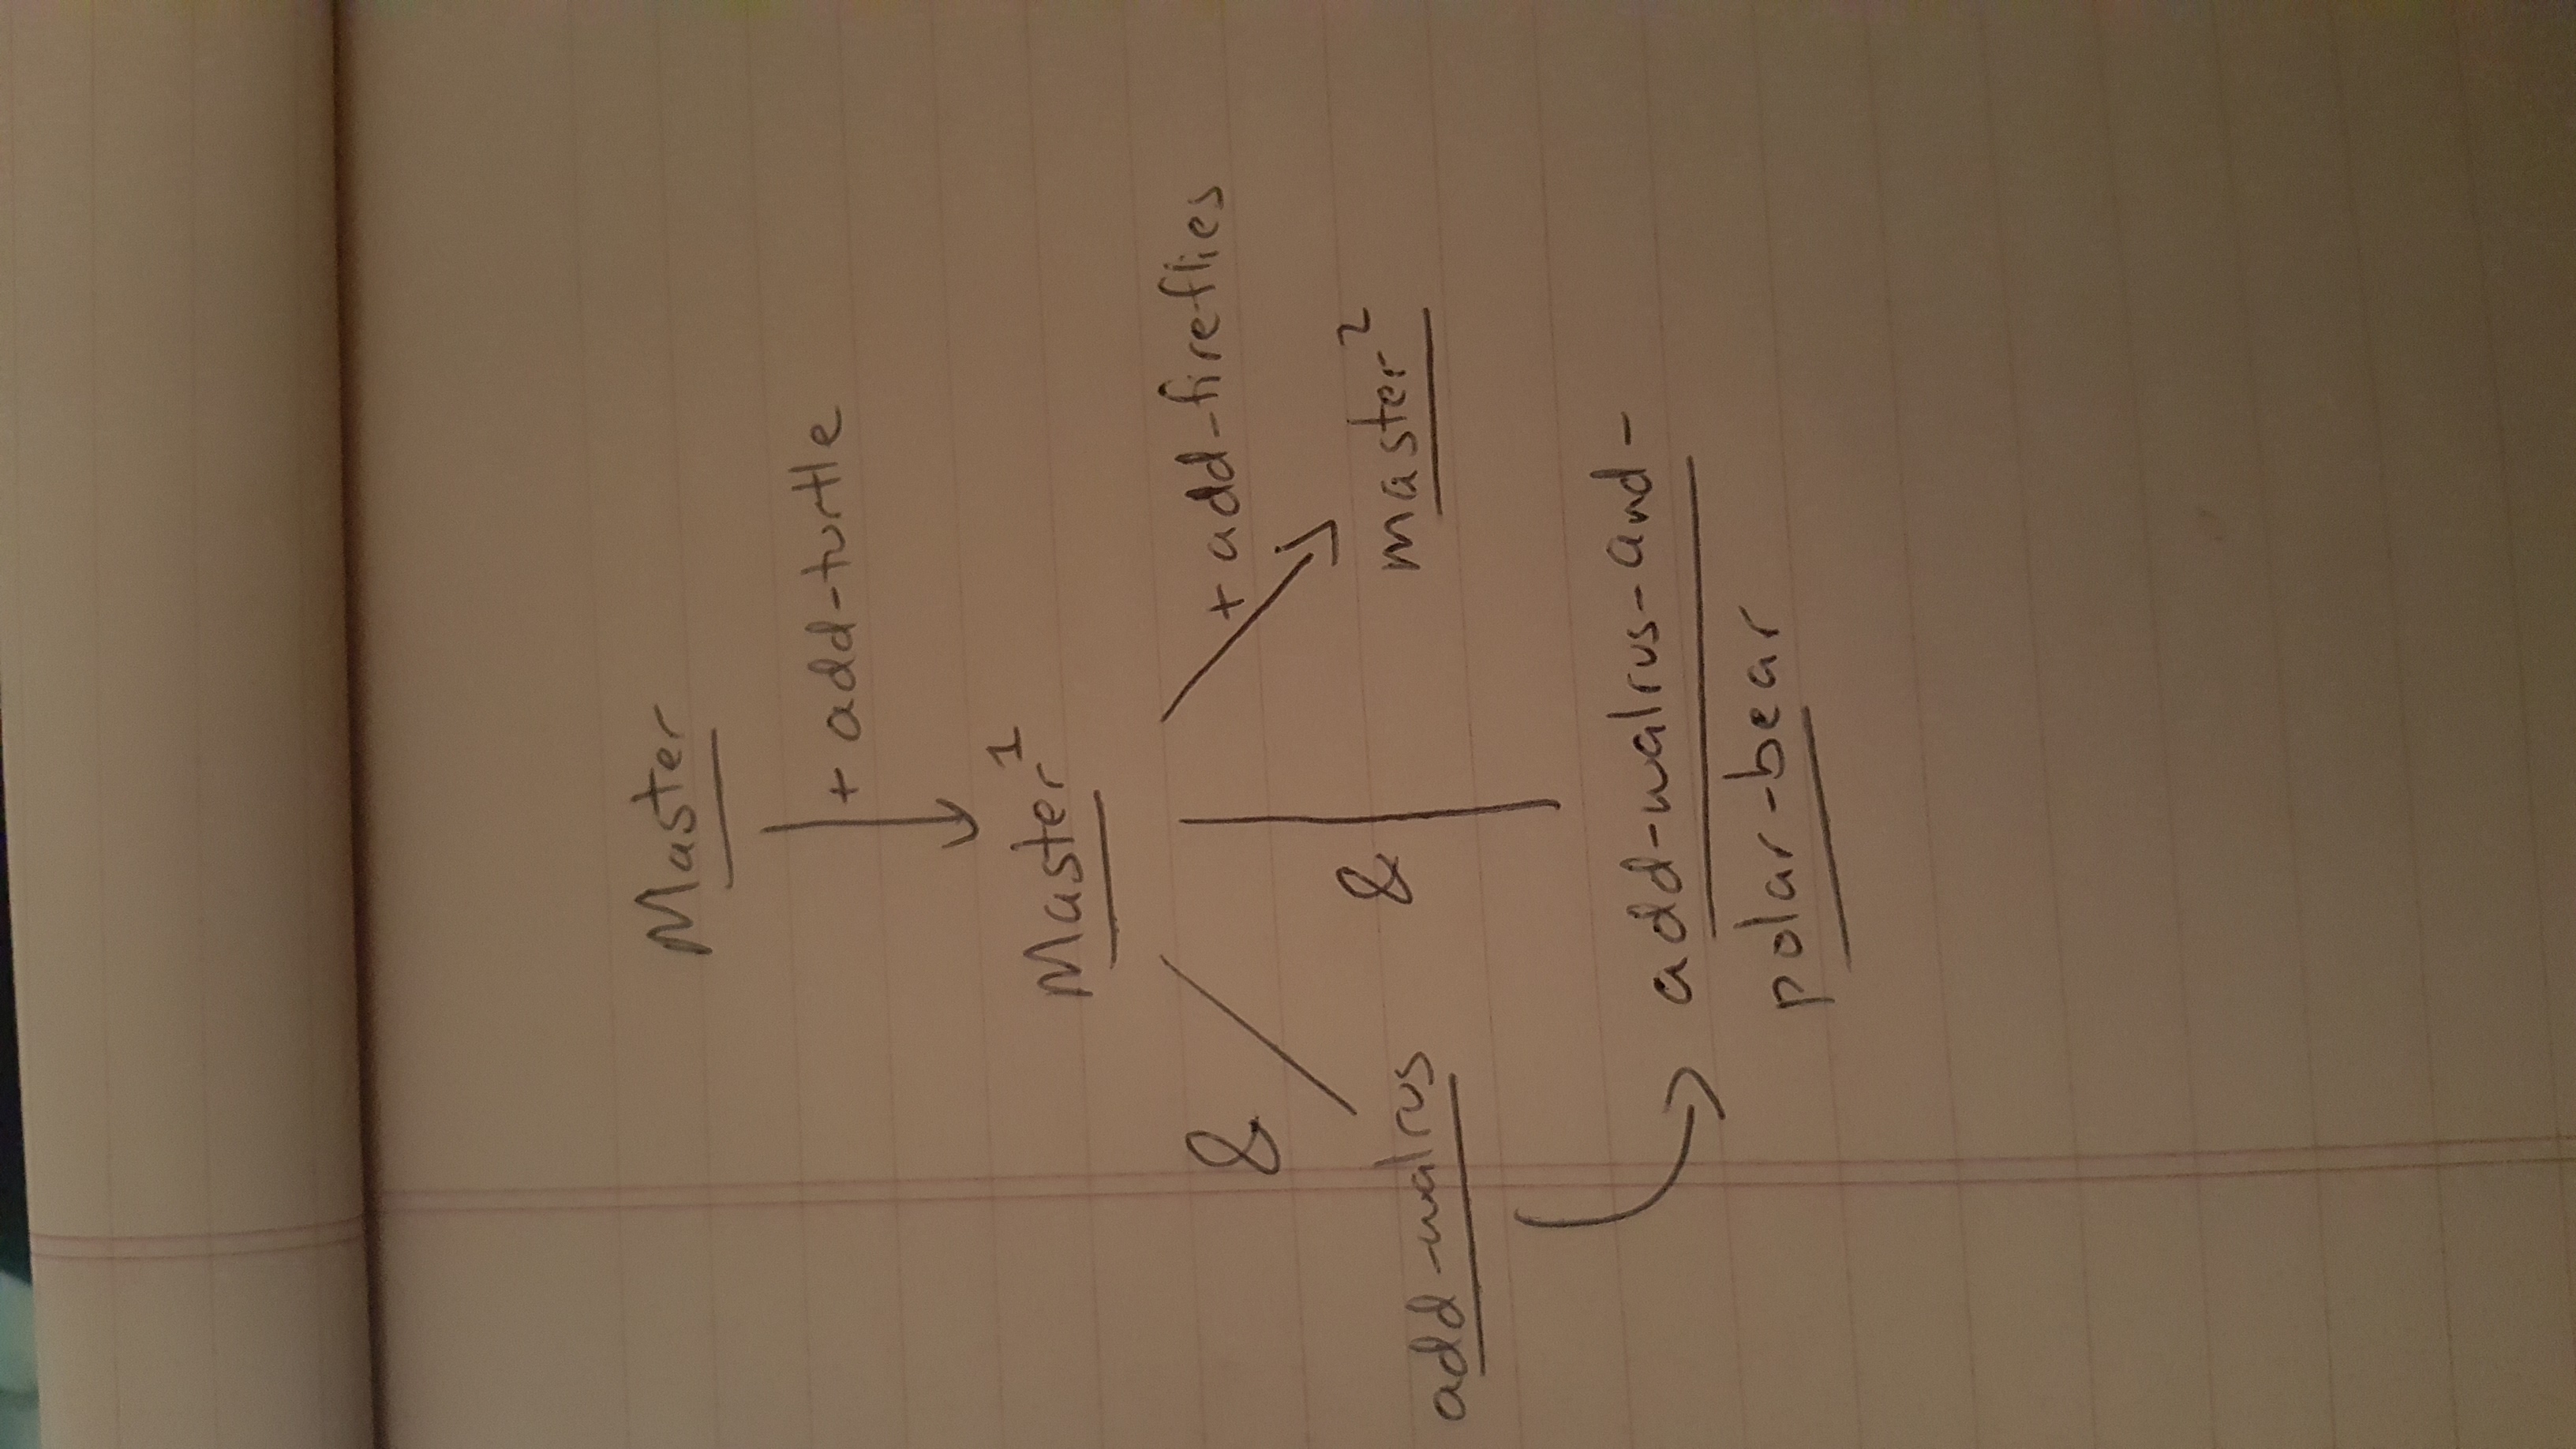 Master
+ add-turtle
Master¹
&
+ add-fireflies
&
master²
add-walrus
add-walrus-and-
polar-bear